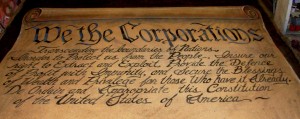 We the Corporations
Transcending the boundaries of Nations,
to Protect us from the People, Secure our
Right to Extract and Exploit, Provide the Defence
of Profit with Impunity, and Secure the Blessings
of Wealth and Privilege for those Who have it Already,
Do Ordain and Appropriate this Constitution
of the United States of America